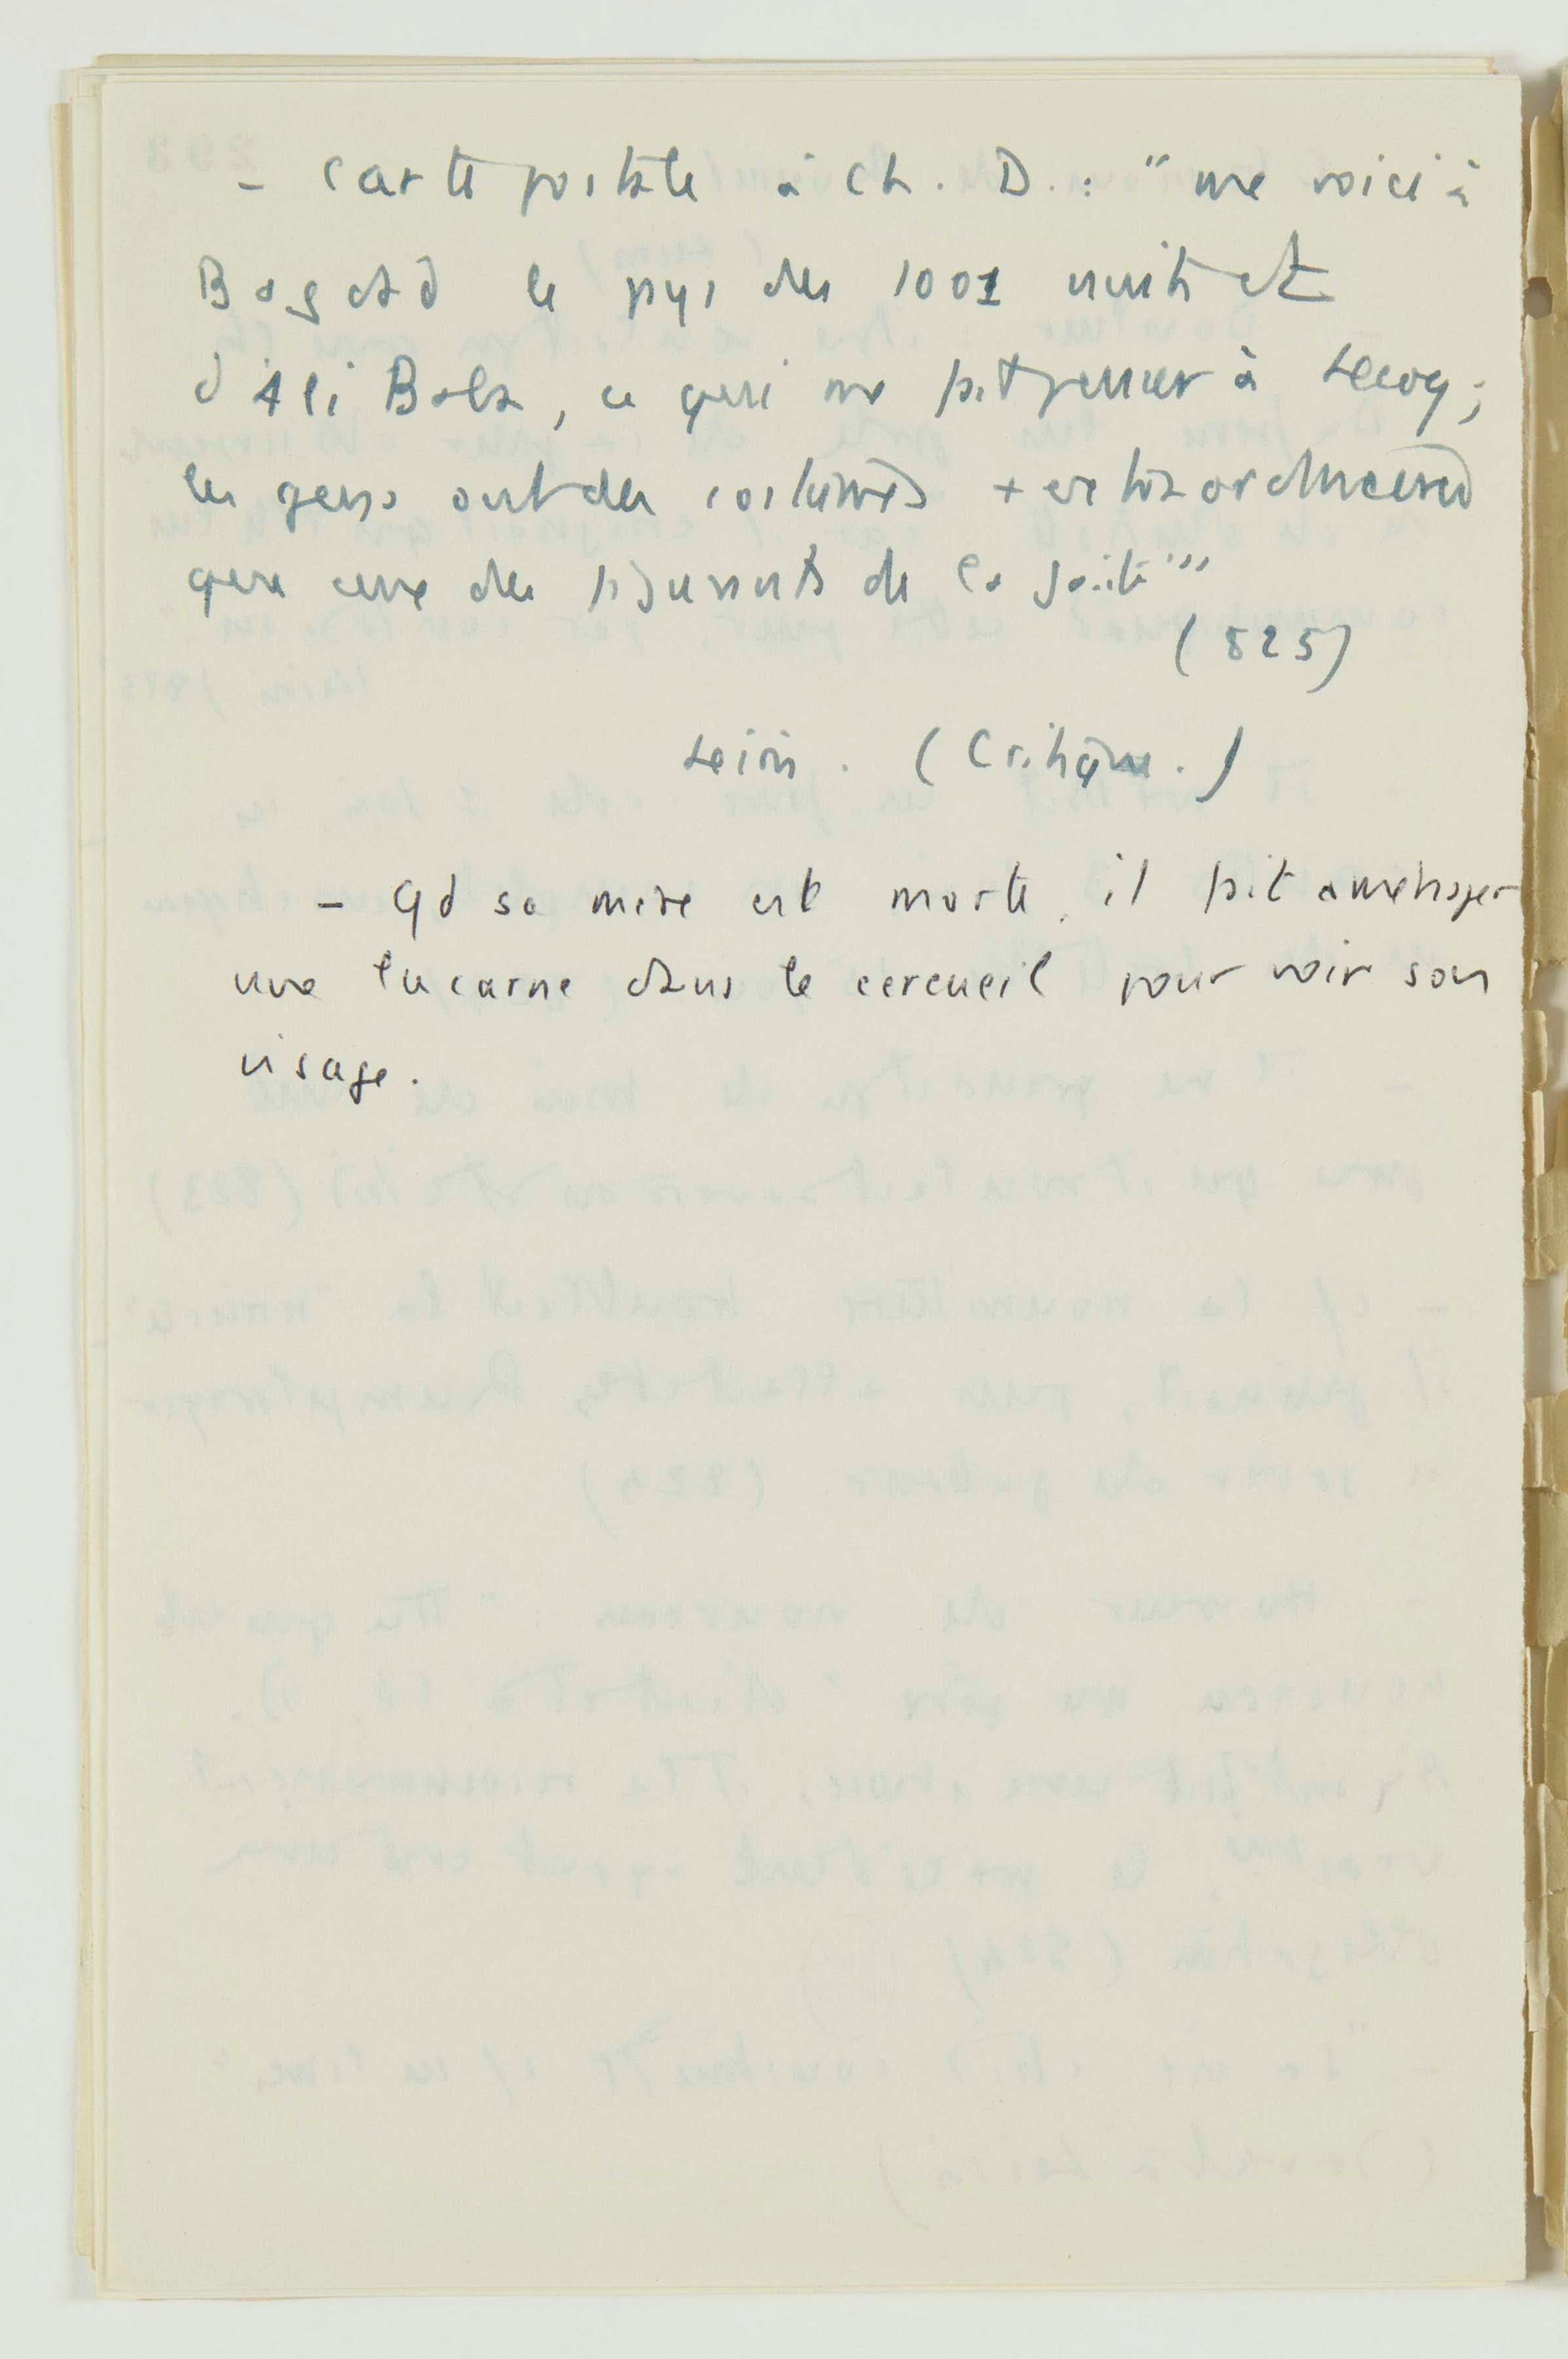 - Carte postale à Ch. D. : "me voici à
Bagdad le pays des 1001 nuits et
d'Ali Baba, ce qui me fait penser à Lecoq ;
les gens ont des costumes + extraordinaires
que ceux des figurants de la Gaité"
(825)
Leiris. (Critique.)
- Qd sa mère est morte, il fait aménager
une lucarne dans le cercueil pour voir son
visage.